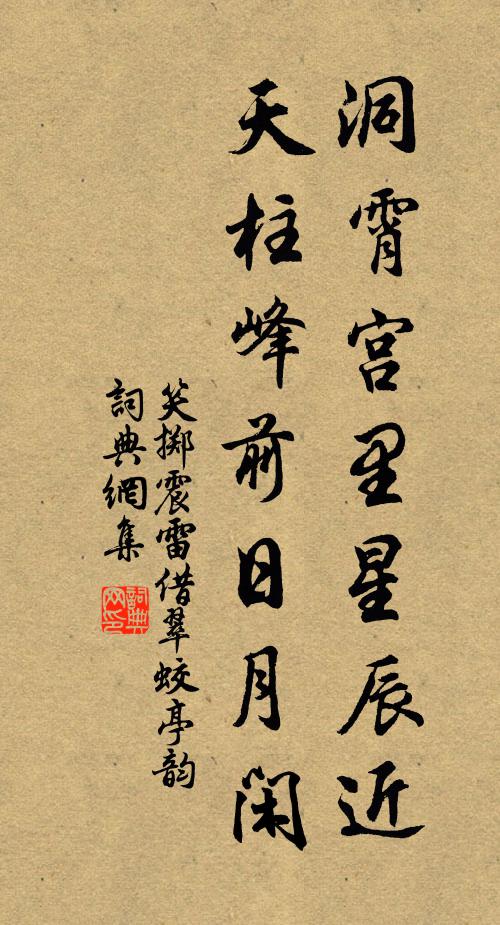 洞霄宫里星辰近
天柱峰前日月闲
笑掷震雷借翠蛟亭韵
詞典網集
詞典
网印